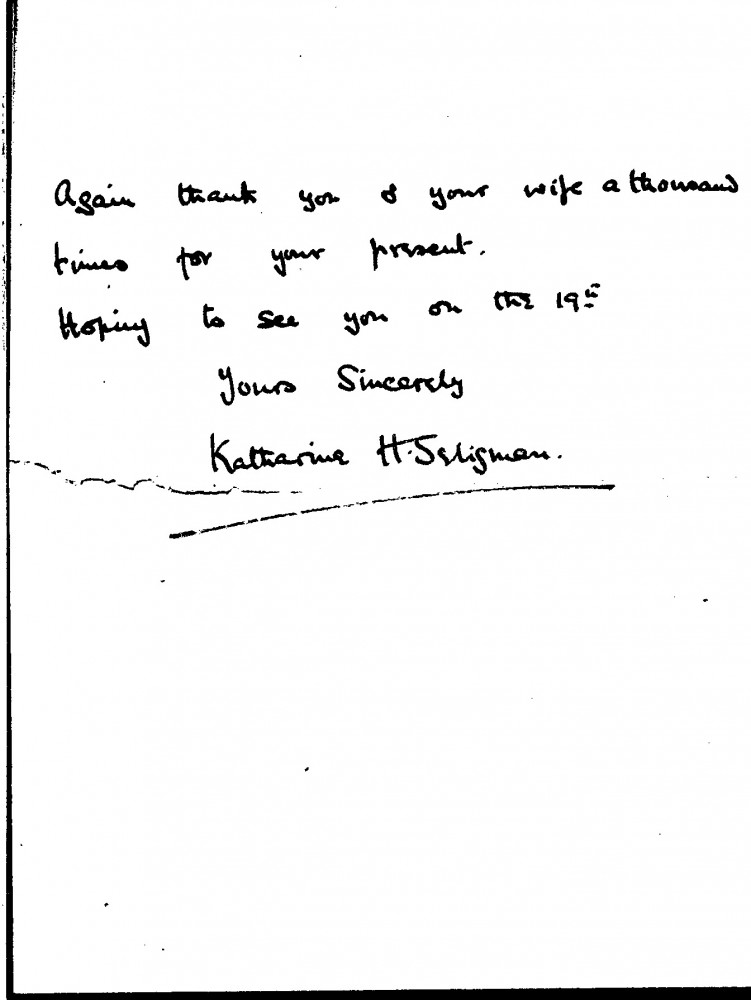 Again thank you & your wife a thousand
times for your present.
Hoping to see you on the 19th
Yours Sincerely
Katharine H. Seligman.